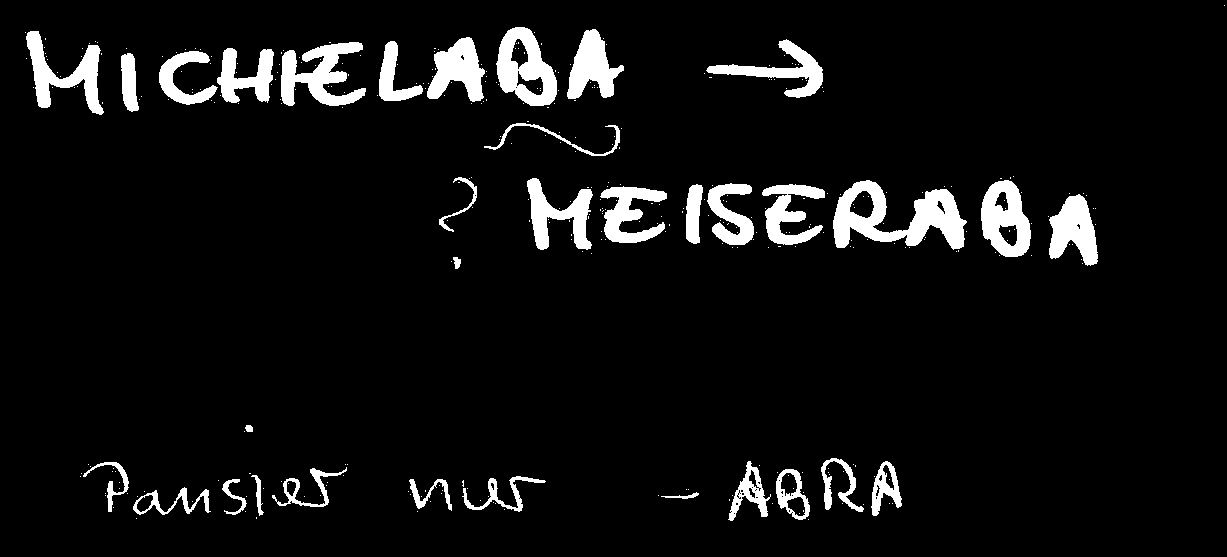 MICHIELABA →
? MEISERABA
Pansier nur - ABRA